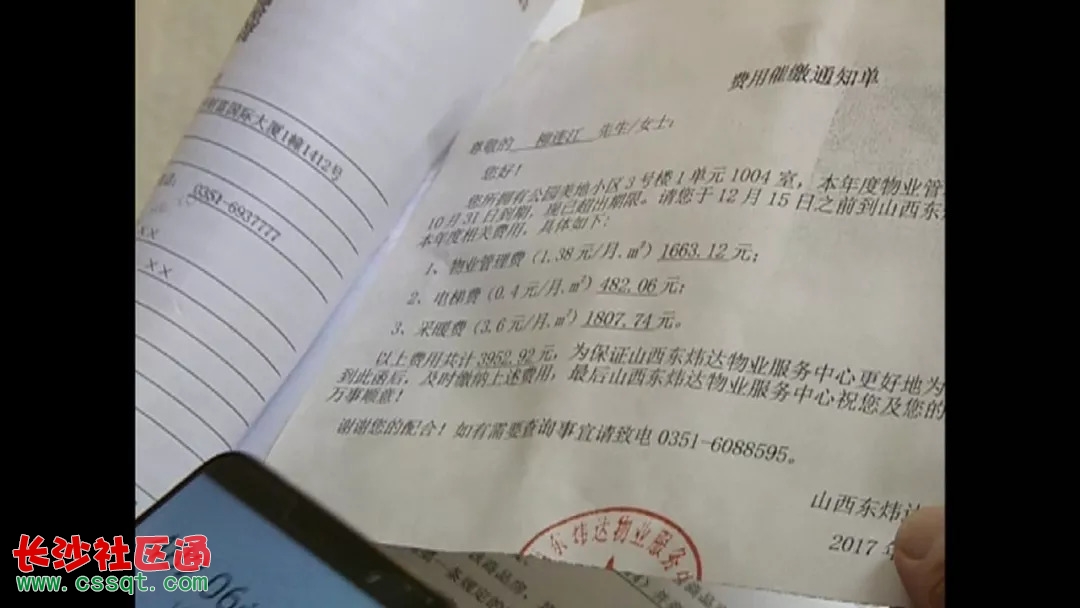 费用催缴通知单
尊敬的 柳连江 先生/女士:
您好!
您所拥有公园美地小区3号楼1单元1004室,本年度物业管
10月31日到期,现已超出期限。请您于12月15日之前到山西东
本年度相关费用,具体如下:
1、物业管理费(1.38元/月.m²)1663.12元;
2、电梯费(0.4元/月.m²)482.06元;
3、采暖费(3.6元/月.m²)1807.74元。
以上费用共计3952.92元,为保证山西东炜达物业服务中心更好地为
到此函后,及时缴纳上述费用,最后山西东炜达物业服务中心祝您及您的
万事顺意!
谢谢您的配合!如有需要查询事宜请致电0351-6088595。
山西东炜达
2017年
东炜达物业服务
国际大厦1幢1412号
0351-6937777
XX
XX
长沙社区通
www.cssqt.com